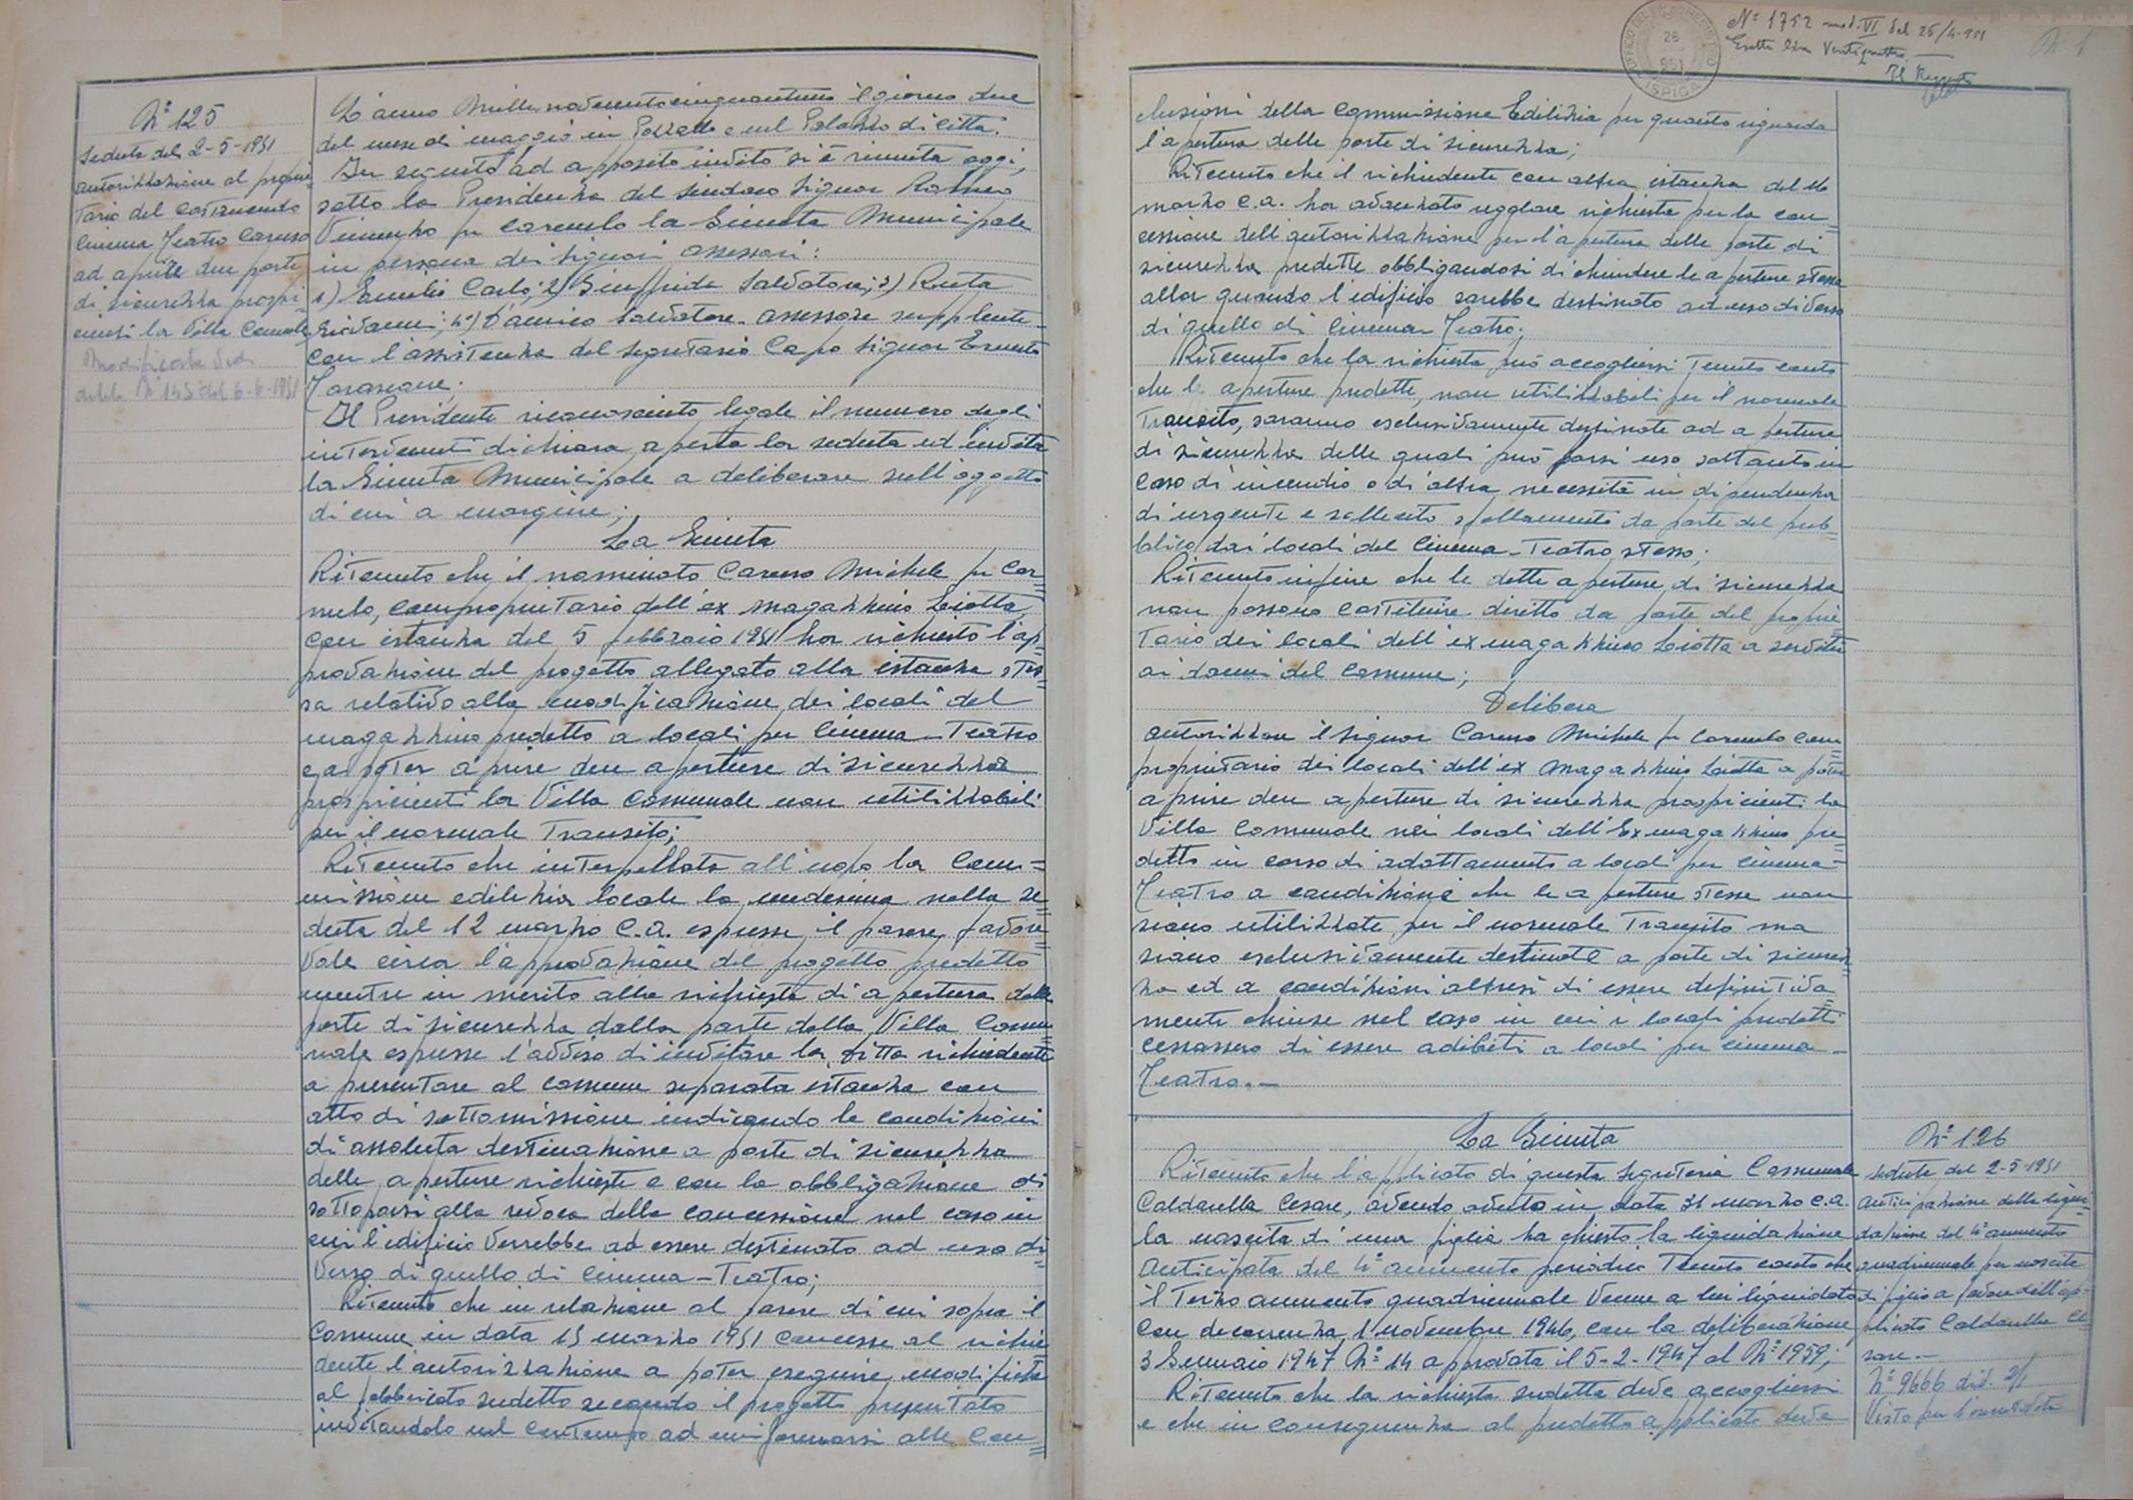 N° 125
Seduta del 2-5-1951
autorizzazione al proprie=
tario del costruendo
Cinema Teatro Caruso
ad aprire due porte
di sicurezza prospi=
cienti la Villa Comunale
Modificata Vedi
delib. N° 145 del 6-6-1951
L'anno Millenovecentocinquantuno il giorno due
del mese di maggio in Pozzallo e nel Palazzo di città.
In seguito ad apposito invito si è riunita oggi,
sotto la Presidenza del Sindaco Signor
Vincenzo fu Carmelo la Giunta Municipale
in persona dei Signori assessori:
1) Carlo; 2) Giuffrida Salvatore; 3) Ruta
Giovanni; 4) D'amico Salvatore. assessore supplente.
con l'assistenza del Segretario Capo Signor Ernesto
Il Presidente riconosciuto legale il numero degli
intervenuti dichiara aperta la seduta ed invita
la Giunta Municipale a deliberare sull'oggetto
di cui a margine;
La Giunta
Ritenuto che il nominato Caruso Michele fu Car=
melo, comproprietario dell'ex magazzino Liotta,
con istanza del 5 febbraio 1951 ha richiesto l'ap=
provazione del progetto allegato alla istanza stes=
sa relativo alla modificazione dei locali del
magazzino predetto a locali per Cinema-Teatro
e a poter aprire due aperture di sicurezza
prospicienti la Villa Comunale non utilizzabili
per il normale Transito;
Ritenuto che interpellata all'uopo la Com=
missione edilizia locale la medesima nella se=
duta del 12 marzo C.a. espresse il parere favore=
vole circa l'approvazione del progetto predetto
mentre in merito alla richiesta di apertura delle
porte di sicurezza dalla parte della Villa Comu
nale espresse l'avviso di invitare la ditta richiedente
a presentare al comune separata istanza con
atto di sottomissione indicando le condizioni
di assoluta destinazione a porte di sicurezza
delle aperture richieste e con la obbligazione di
sottoporsi alla revoca della concessione nel caso in
cui l'edificio verrebbe ad essere destinato ad uso di
verso di quello di Cinema-Teatro;
Ritenuto che in relazione al parere di cui sopra il
Comune in data 15 marzo 1951 concesse al richie
dente l'autorizzazione a poter eseguire modifiche
al fabbricato sudetto secondo il progetto presentato
invitandolo nel contempo ad uniformarsi alle con=
UFFICIO DEL REGISTRO
26
951
ISPICA
N° 1752 mod. VI del 26/4-951
Esatte lire Ventiquattro.
N. 1
clusioni della Commissione Edilizia per quanto riguarda
l'apertura delle porte di sicurezza;
Ritenuto che il richiedente con altra istanza del 16
marzo C.a. ha avanzato regolare richiesta per la con=
cessione dell'autorizzazione per l'apertura delle porte di
sicurezza predette obbligandosi di chiudere le aperture stesse
allor quando l'edificio sarebbe destinato ad uso diverso
di quello di Cinema-Teatro;
Ritenuto che la richiesta può accogliersi Tenuto conto
che le aperture predette, non utilizzabili per il normale
Transito, saranno esclusivamente destinate ad aperture
di sicurezza delle quali può farsi uso soltanto in
caso di incendio o di altra necessità in dipendenza
di urgente e sollecito sfollamento da parte del pub=
blico dai locali del Cinema-Teatro stesso;
Ritenuto infine che le dette aperture di sicurezza
non possono costituire diritto da parte del proprie
tario dei locali dell'ex magazzino Liotta a servitù
ai danni del Comune;
Delibera
autorizzare il Signor Caruso Michele fu Carmelo com=
proprietario dei locali dell'ex magazzino Liotta a poter
aprire due aperture di sicurezza prospicienti la
Villa Comunale nei locali dell'Ex magazzino pre=
detto in corso di adattamento a locali per cinema-
Teatro a condizione che le aperture stesse non
siano utilizzate per il normale Transito ma
siano esclusivamente destinate a porte di sicurez=
za ed a condizioni altresì di essere definitiva=
mente chiuse nel caso in cui i locali predetti
cessassero di essere adibiti a locali per cinema-
Teatro.-
La Giunta
Ritenuto che l'applicato di questa Segreteria Comunale
Caldarella Cesare, avendo avuto in data 31 marzo C.a.
la nascita di una figlia ha chiesto la liquidazione
anticipata del 4° aumento periodico Tenuto conto che
il Terzo aumento quadriennale Venne a lui liquidato
con decorrenza 1 novembre 1946, con la deliberazione
3 Gennaio 1947 N° 14 approvata il 5-2-1947 al N° 1959;
Ritenuto che la richiesta sudetta deve accogliersi
e che in conseguenza al predetto applicato deve
N° 126
Seduta del 2-5-1951
Anticipazione della liqui=
dazione del 4° aumento
quadriennale per nascita
di figlio a favore dell'ap=
plicato Caldarella Ce=
sare.-
N° 9666 div. 2/1
Visto per